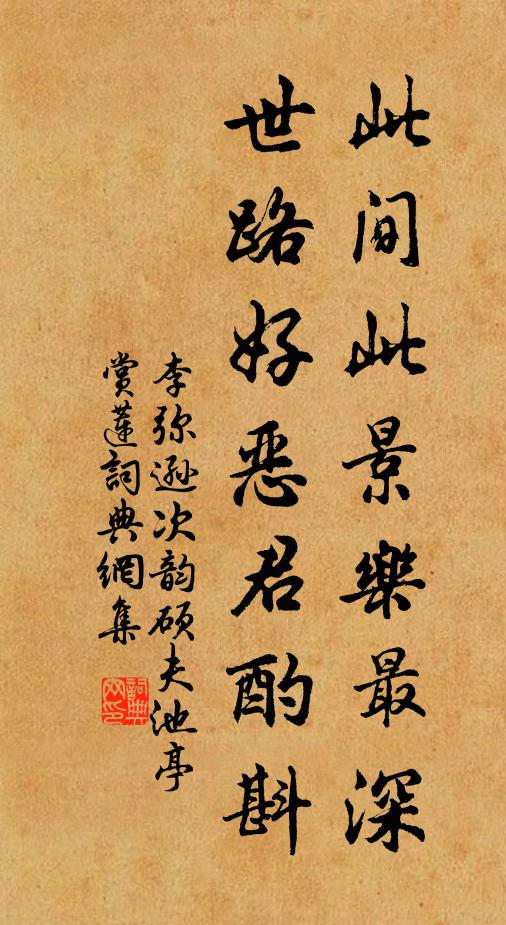 此间此景樂最深
世路好恶君酌斟
李弥逊次韵硕夫池亭
賞蓮詞典網集
詞典
网印